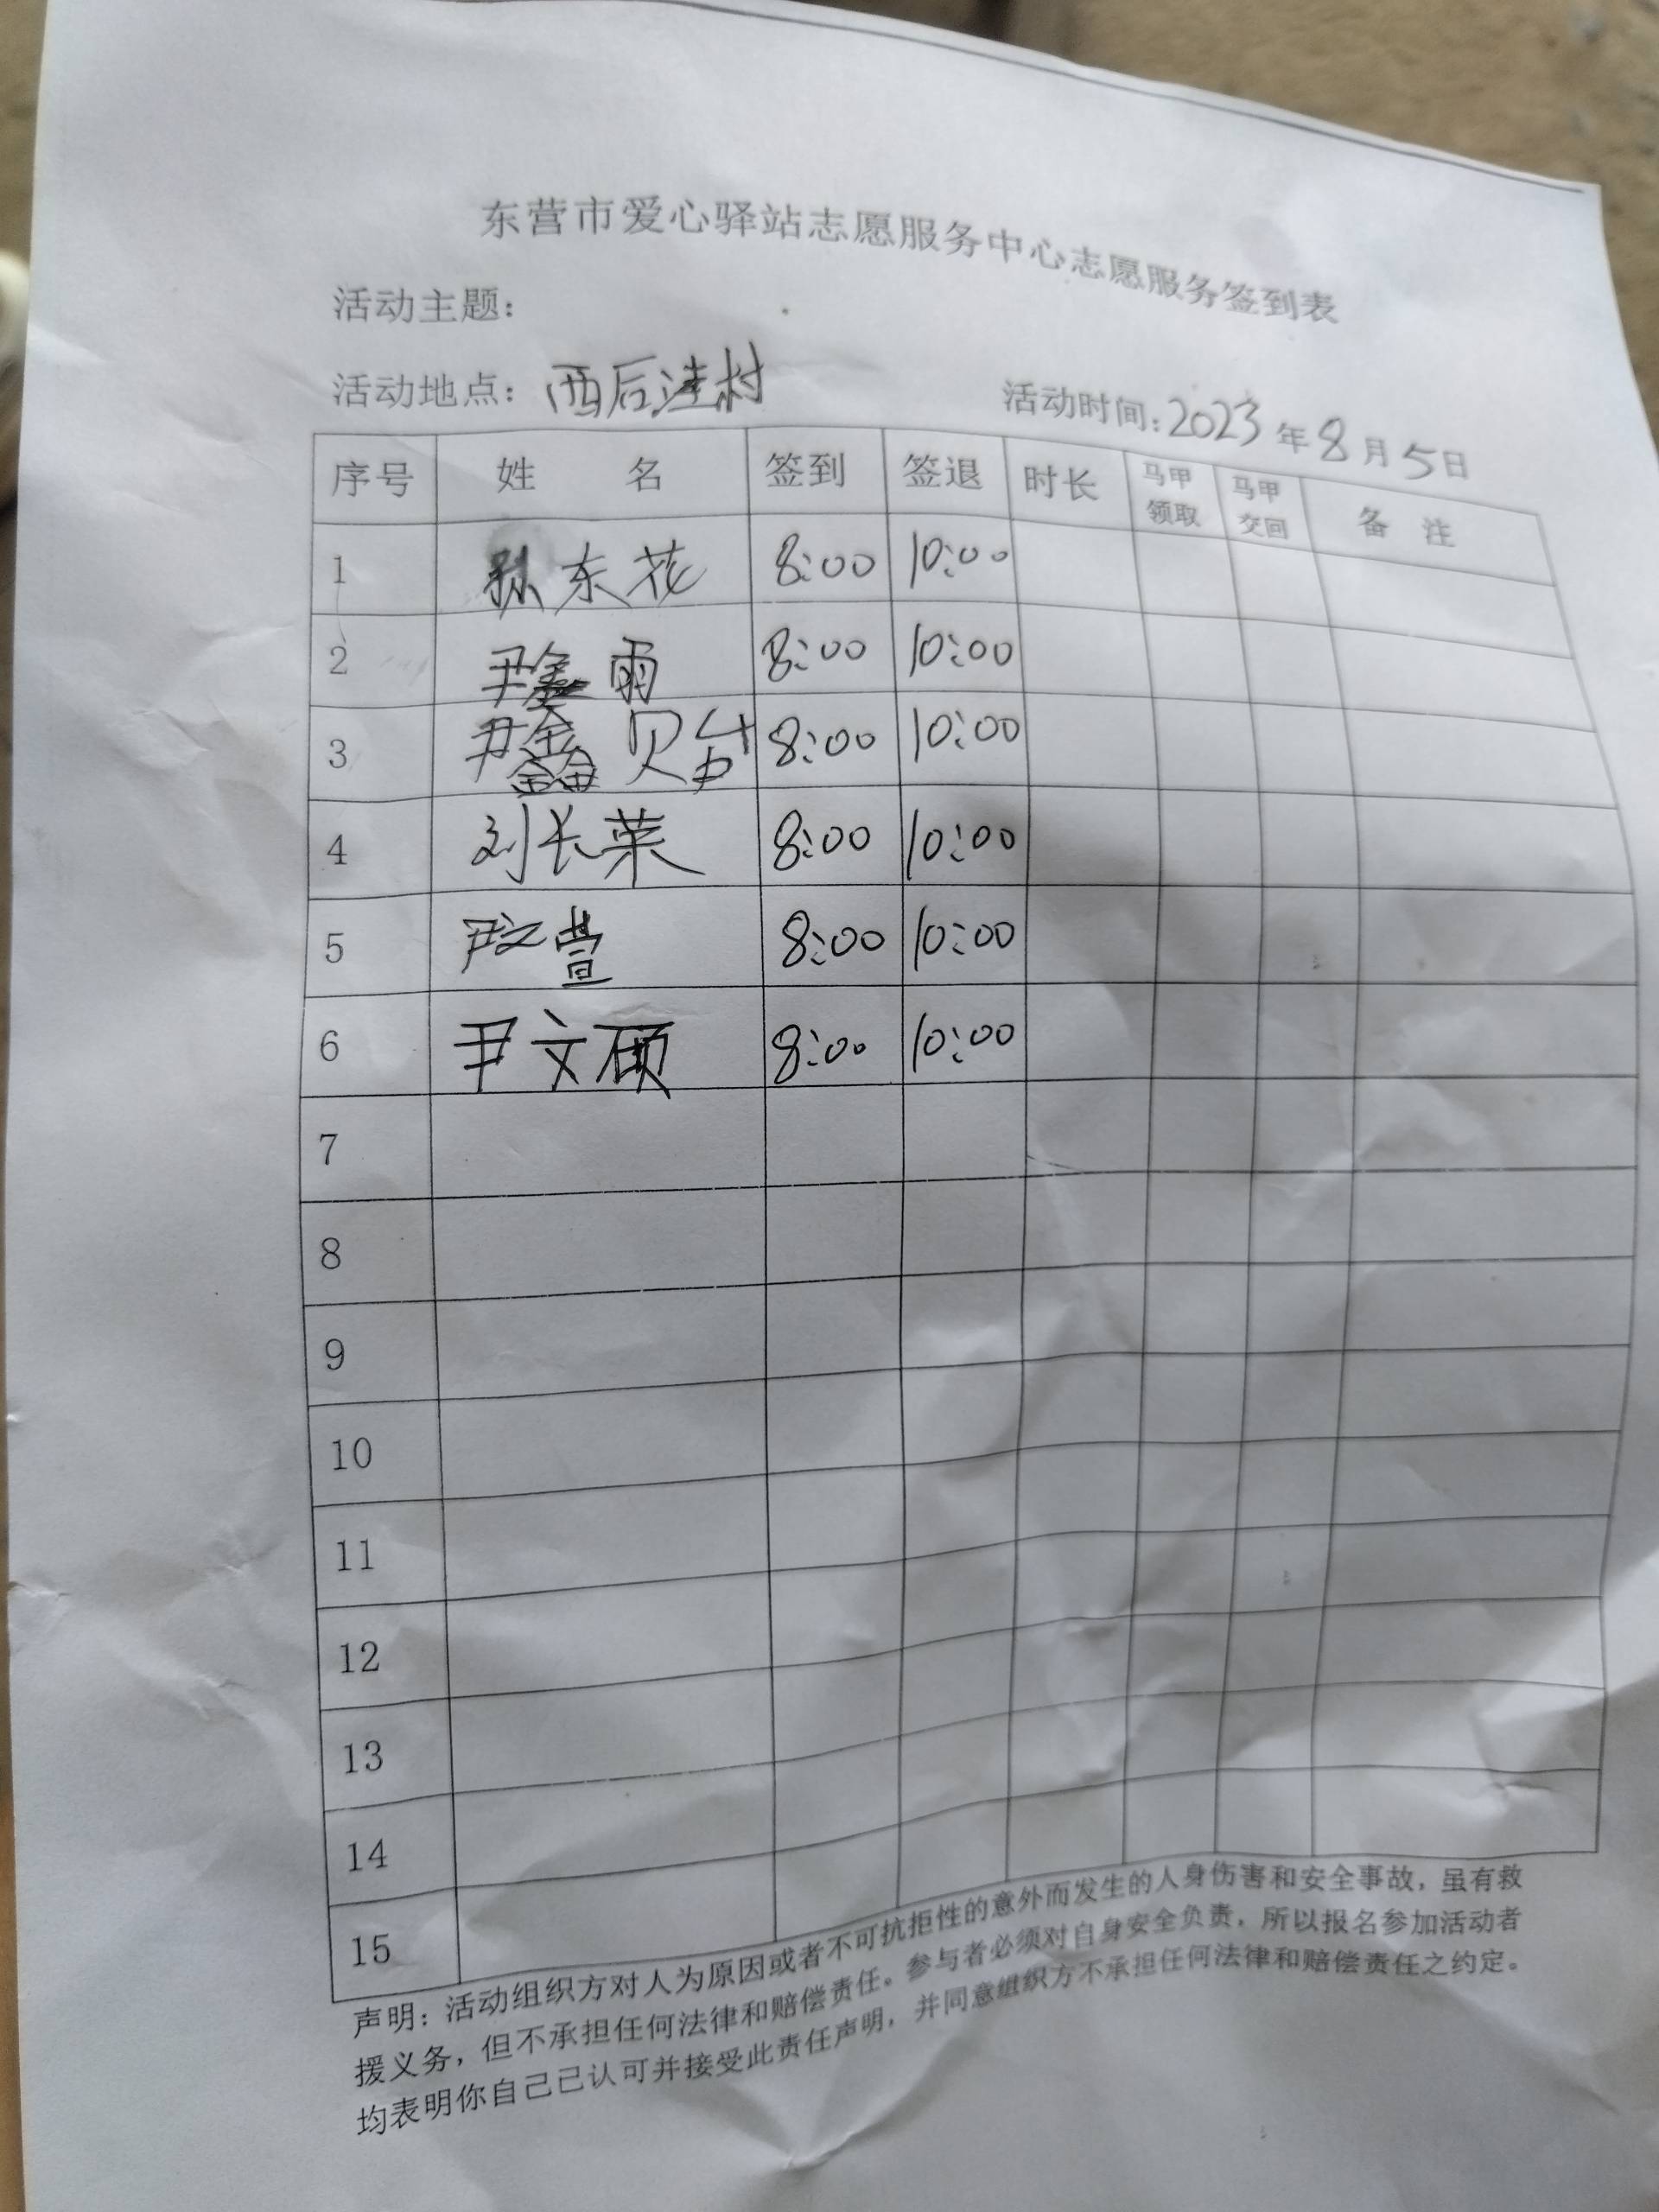 东营市爱心驿站志愿服务中心志愿服务签到表
活动主题：
活动地点：西后洼村 活动时间：2023年8月5日
序号 姓 名 签到 签退 时长 马甲领取 马甲交回 备 注
1 孙东花 8:00 10:00
2 尹鑫雨 8:00 10:00
3 尹鑫 8:00 10:00
4 刘长莱 8:00 10:00
5 尹文萱 8:00 10:00
6 尹文硕 8:00 10:00
7
8
9
10
11
12
13
14
15
声明：活动组织方对人为原因或者不可抗拒性的意外而发生的人身伤害和安全事故，虽有救
援义务，但不承担任何法律和赔偿责任。参与者必须对自身安全负责，所以报名参加活动者
均表明你自己已认可并接受此责任声明，并同意组织方不承担任何法律和赔偿责任之约定。